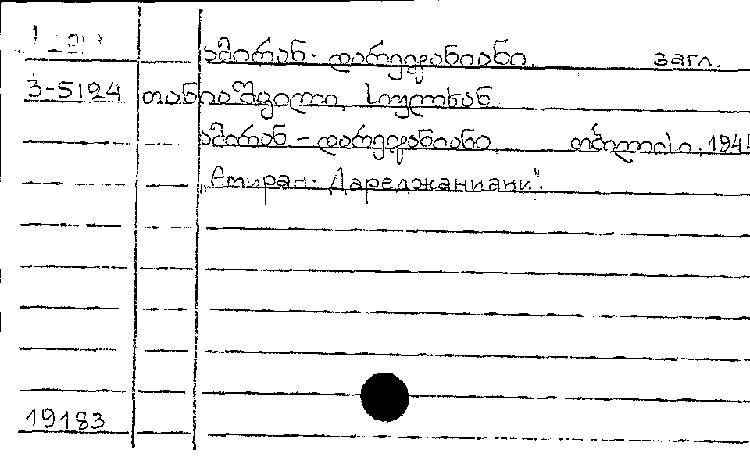 ამირან-დარეჯანიანი. загл.
3-5124 თანიაშვილი, სულხან
ამირან-დარეჯანიანი. თბილისი, 194
"Амиран-Дареджаниани".
19183